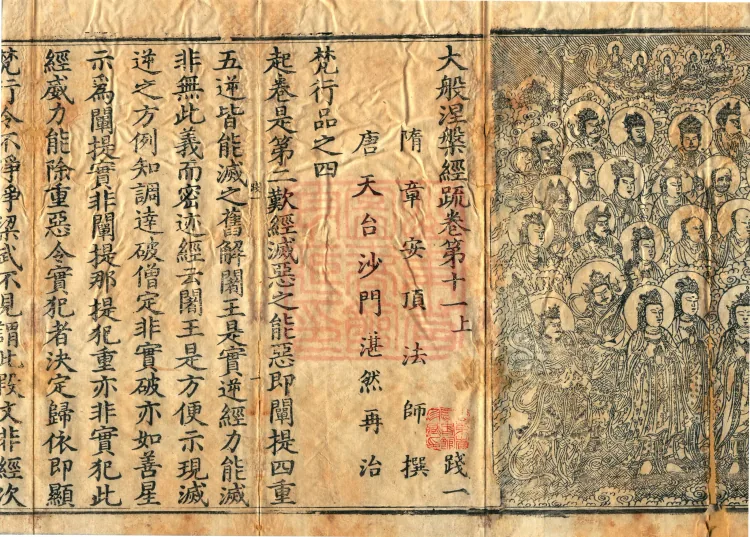 大般涅槃經疏卷第十一上
隋章安頂法師撰 踐一
唐天台沙門湛然再治
梵行品之四
起卷是第二歎經滅惡之能惡即闡提四重
五逆皆能滅之舊解闍王是實逆經力能滅
非無此義而密迹經云闍王是方便示現滅
逆之方例知調達破僧定非實破亦如善星
示爲闡提實非闡提那提犯重亦非實犯此
經威力能除重惡令實犯者決定歸依即顯
梵行令不諍諍梁武不見謂此叚文非經次